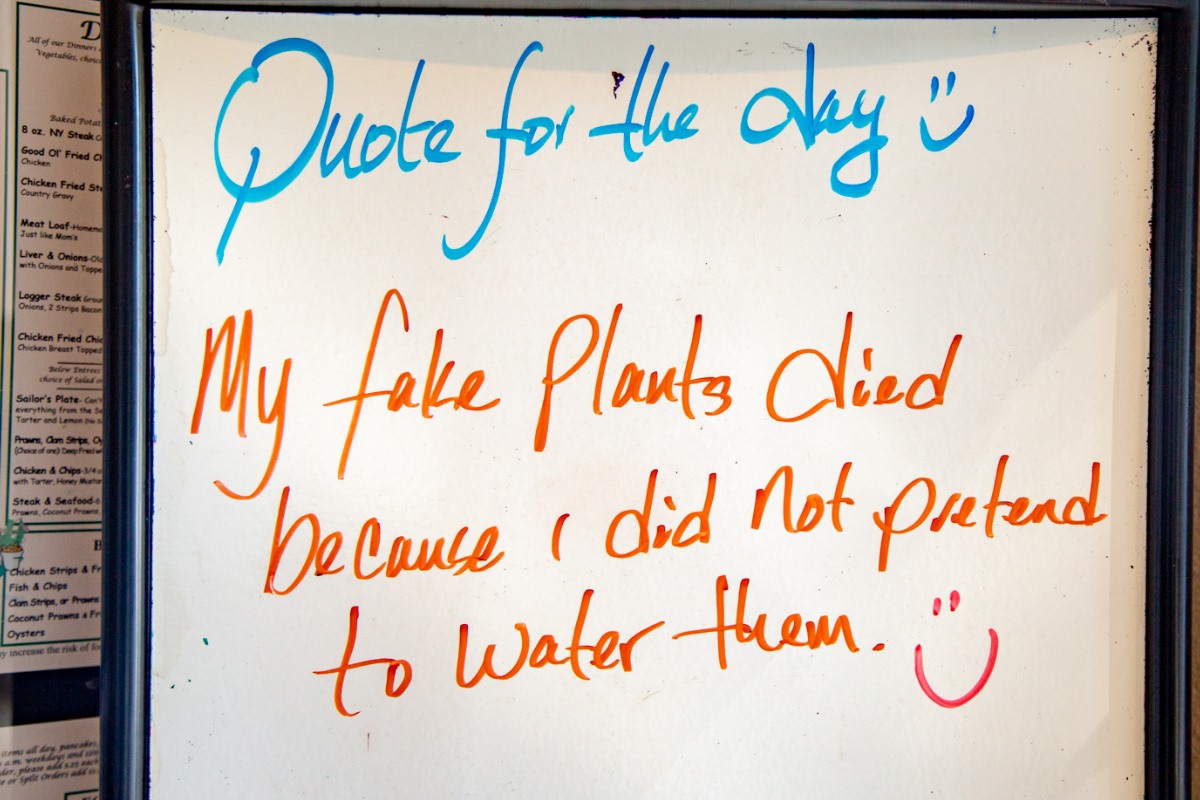 Quote for the day
My fake plants died
because i did not pretend
to water them.
All of our Dinners
Vegetables, choic
8 oz. NY Steak
Good Ol' Fried Ch
Chicken
Chicken Fried Ste
Country Gravy
Meat Loaf-Homema
Just like Mom's
Liver & Onions-Old
with Onions and Toppe
Logger Steak Groun
Onions, 2 Strips Bacon
Chicken Fried Chic
Chicken Breast Topped
Below Entrees
choice of Salad o
Sailor's Plate- Can't
everything from the Se
Tarter and Lemon
Prawns, Clam Strips, Oy
(Choice of one) Deep Fried w
Chicken & Chips-3/4
with Tarter, Honey Mustar
Steak & Seafood-6
Prawns, Coconut Prawns,
B
Chicken Strips & Fr
Fish & Chips
Clam Strips, or Prawns
Coconut Prawns & Fr
Oysters
y increase the risk of fo
items all day, pancakes,
a.m. weekdays and
der, please add $.25 each
e or Split Orders add